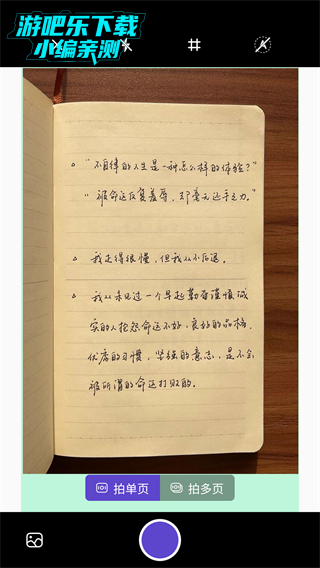 游吧乐下载
小编亲测
。“不自律的人生是一种怎么样的体验?”
“被命运反复羞辱，却毫无还手之力。”
。我走得很慢，但我从不后退。
。我从未见过一个早起勤奋谨慎诚
实的人抱怨命运不好，良好的品格，
优秀的习惯，坚强的意志，是不会
被所谓的命运打败的。
拍单页
拍多页